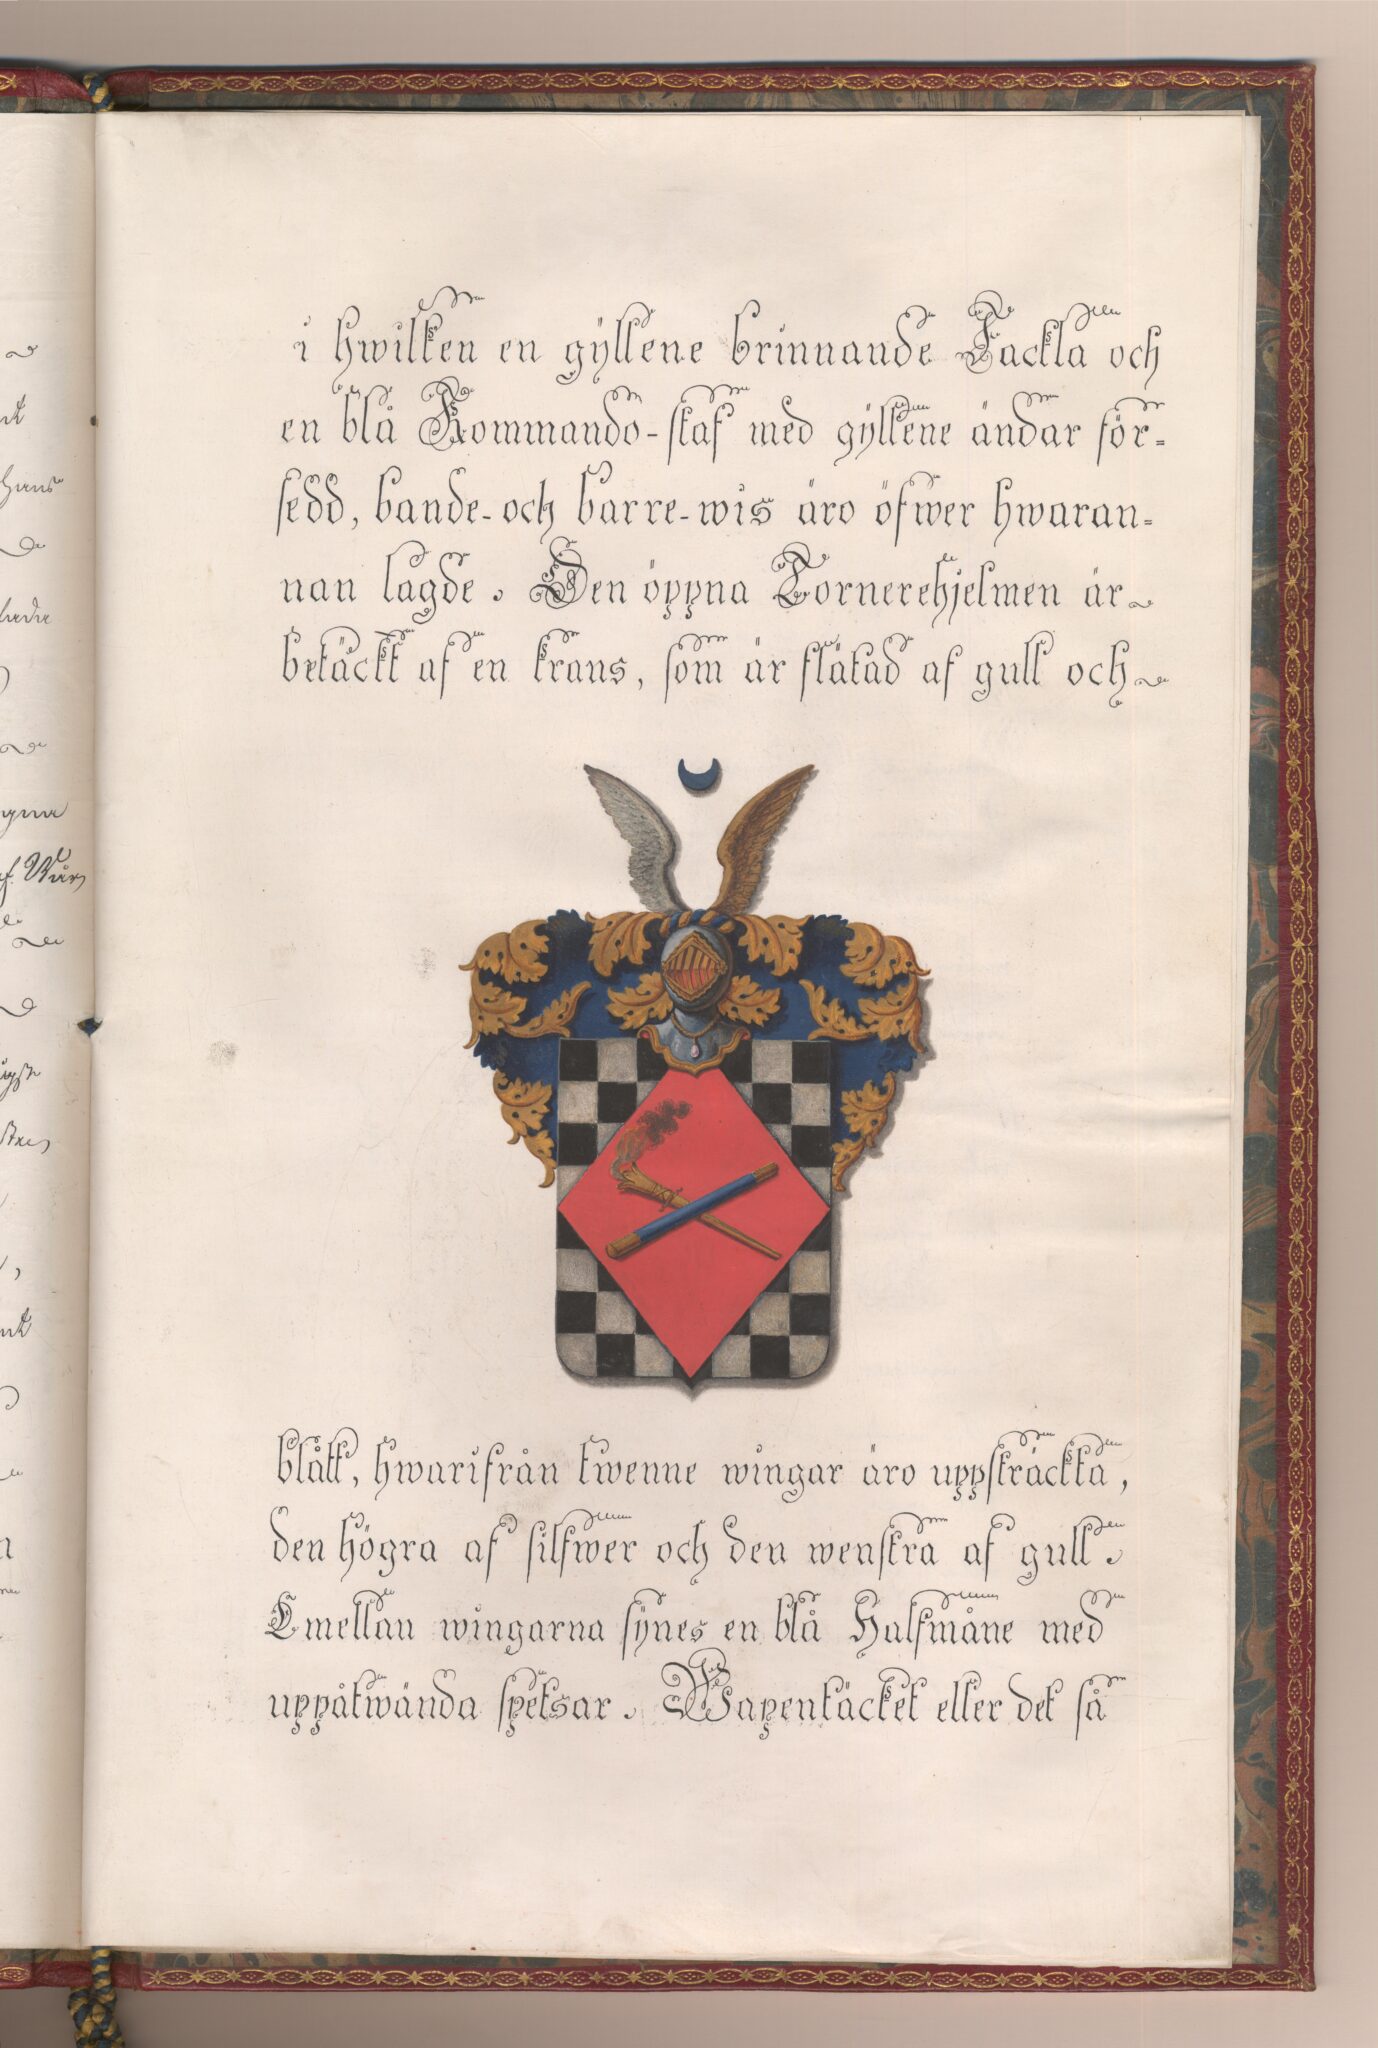 i hwilken en gÿllene brinnande Fackla och
en blå Kommando-staf med gÿllene ändar för=
sedd, bande- och barre-wis äro öfwer hwaran=
nan lagde. Den öppna Tornerehjelmen är
betäckt af en krans, som är flätad af gull och
blått, hwarifrån twenne wingar äro uppsträckta,
den högra af silfwer och den wenstra af gull.
Emellan wingarna sÿnes en blå Halfmåne med
uppåtwända spetsar. Wapentäcket eller det så